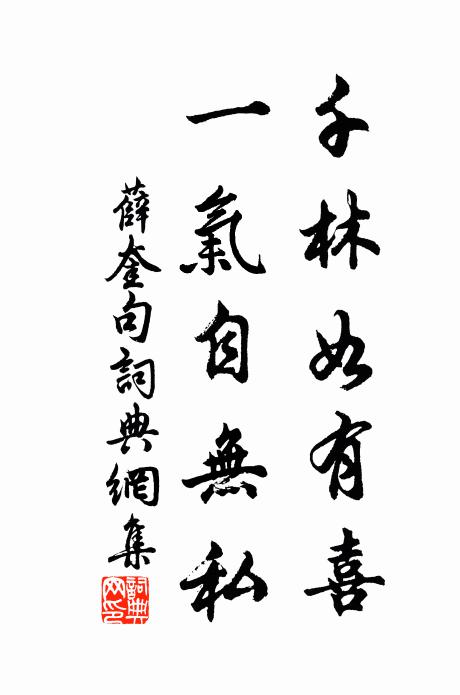 千林如有喜
一氣自無私
薛奎句詞典網集